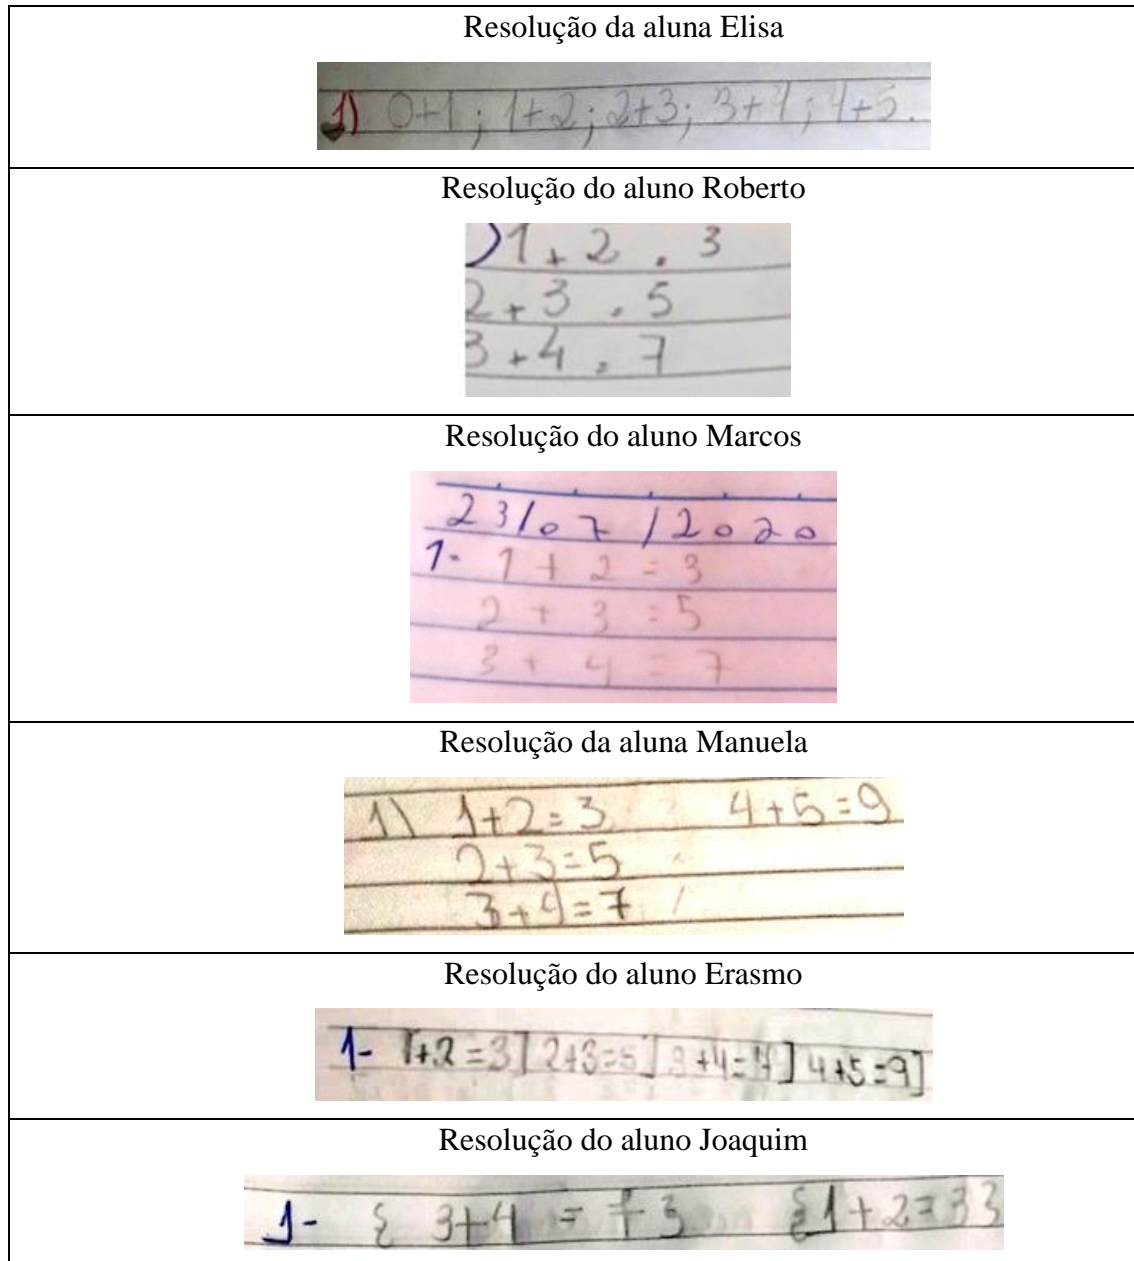 Resolução da aluna Elisa
1) 0+1; 1+2; 2+3; 3+4; 4+5.
Resolução do aluno Roberto
)1 + 2 = 3
2 + 3 = 5
3 + 4 = 7
Resolução do aluno Marcos
23/07/2020
1- 1 + 2 = 3
2 + 3 = 5
3 + 4 = 7
Resolução da aluna Manuela
1) 1+2=3 4+5=9
2+3=5
3+4=7
Resolução do aluno Erasmo
1- 1+2=3] 2+3=5] 3+4=7] 4+5=9]
Resolução do aluno Joaquim
1- { 3+4 = 7 { 1+2=3